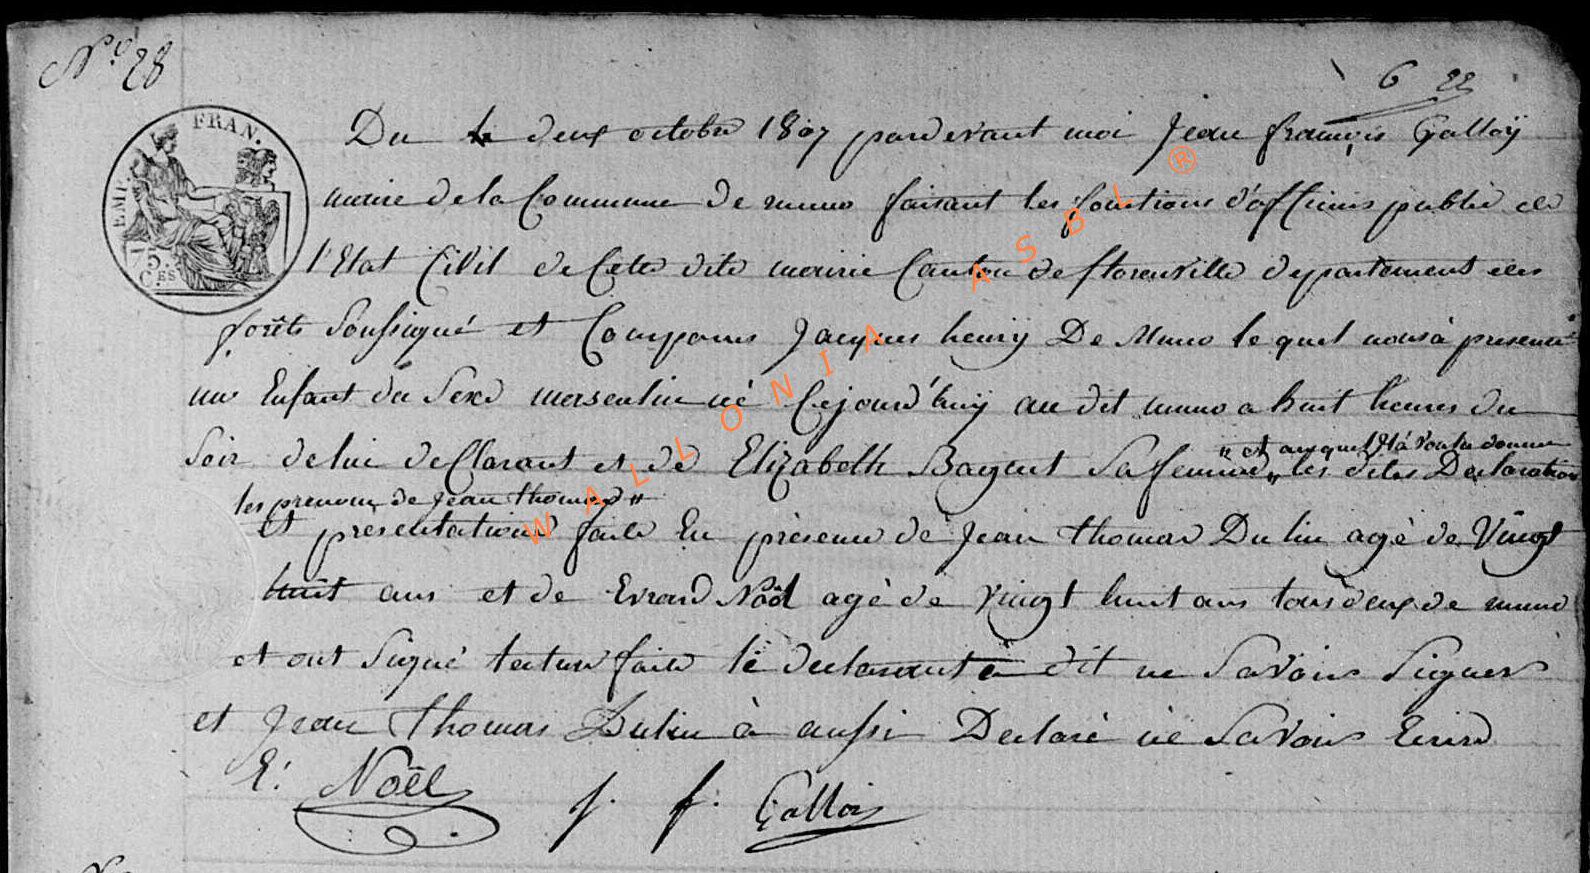 N° 28
6 22
FRAN.
EMP.
75.
C.ES
Du deux octobre 1807 pardevant moi Jean françois Galloÿ
maire de la Commune de muno faisant les fonctions d'officiers public de
l'Etat Civil de Cette dite mairie Canton de florenville departement des
forêts Soussigné et Comparus Jacques henrÿ De Muno le quel nous à presenté
un Enfant du Sexe masculin né Cejourd'huÿ au dit muno a huit heures du
" et auquel Il à Voulu donner
Soir de lui deClarant et de Elizabeth Baguet Sa femme " les dites Declaration
les prenoms de Jean thomas "
Et presentation faite En présence de Jean thomas Dulin agé de Vingt
huit ans et de Evrard Noël agé de Vingt huit ans tous deux de muno
et ont Signé lecture faite le declarant a dit ne Savoir Signer
et Jean thomas Dulin à aussi Declaré né Savoir Ecrire
E. Noël j. f. Gallois
WALLONIA ASBL ®